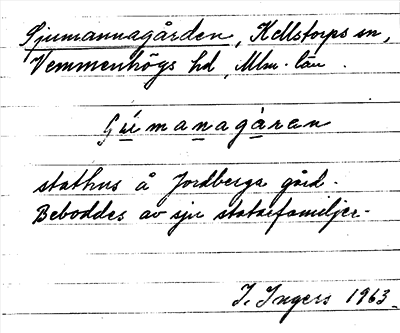 Sjumannagården, Källstorps sn,
Vemmenhögs hd, Mlm. län.
stathus å Jordberga gård.
Beboddes av sju statarefamiljer.
I. Ingers 1963.